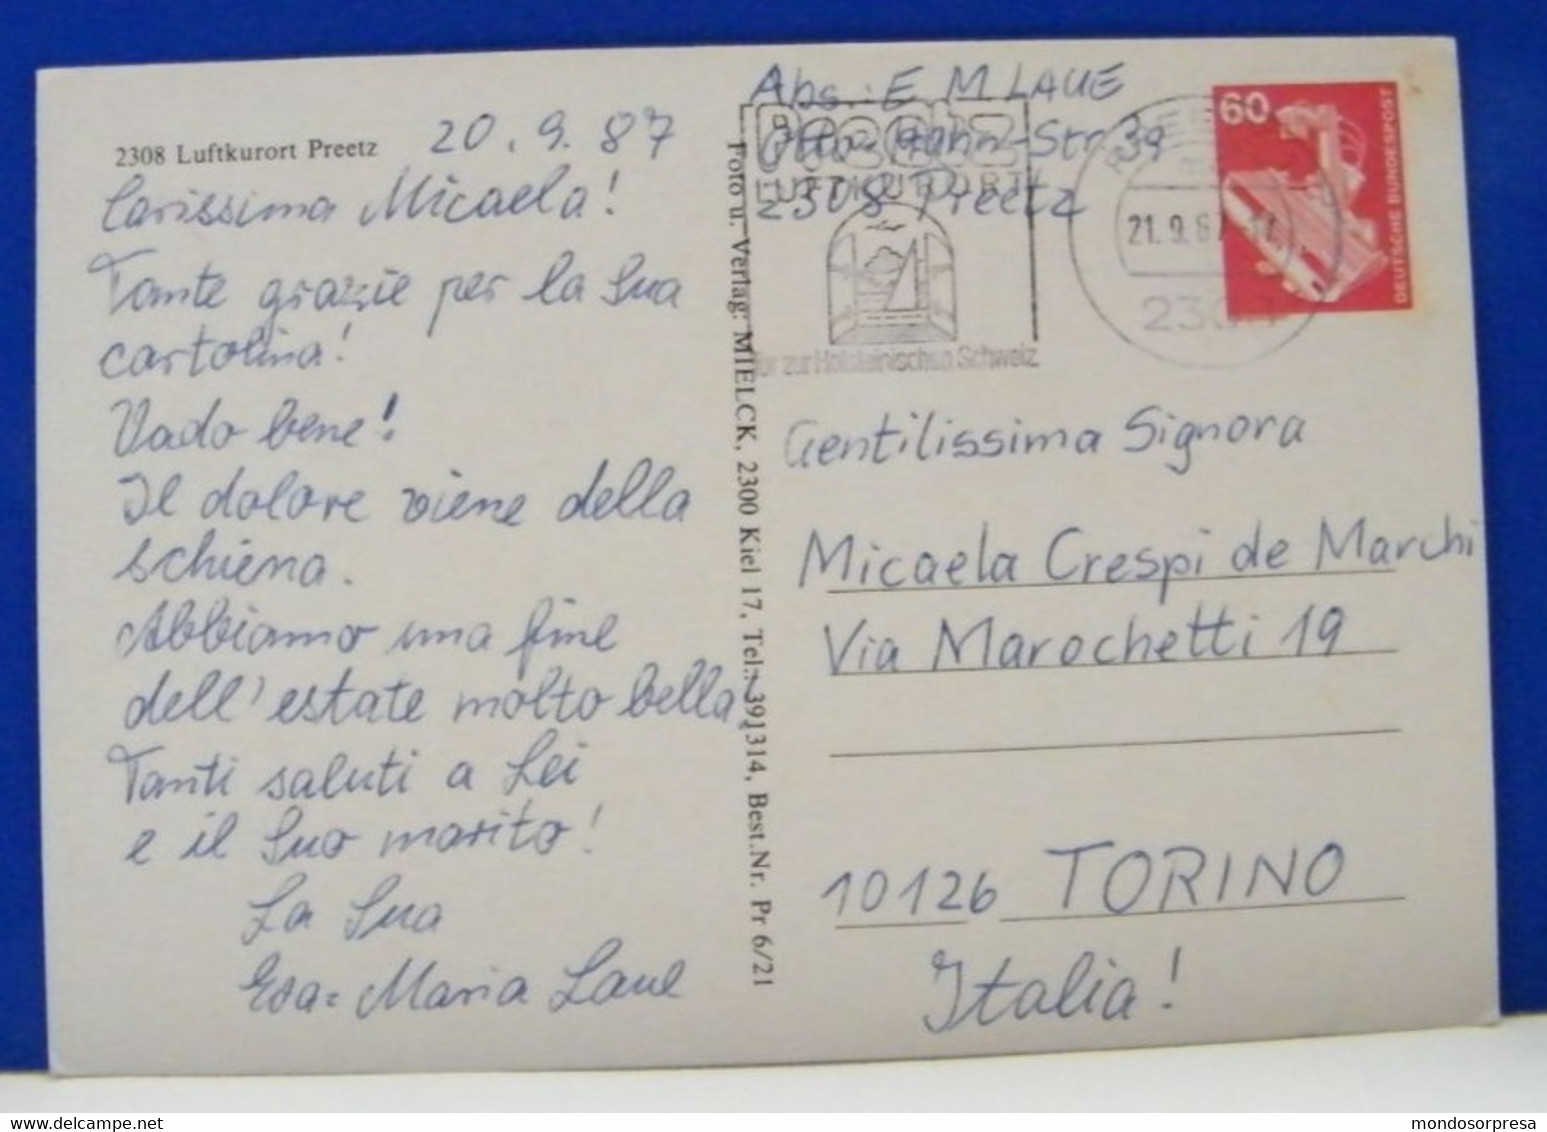 2308 Luftkurort Preetz
20.9.87
Carissima Micaela!
Tante grazie per la Sua
cartolina!
Vado bene!
Il dolore viene della
schiena.
Abbiamo una fine
dell'estate molto bella.
Tanti saluti a Lei
e il Suo marito!
La Sua
Eva-Maria Laue
Foto u. Verlag: MIELCK, 2300 Kiel 17, Tel.: 391314, Best.Nr. Pr 6/21
Abs.: E M LAUE
Otto-Hahn-Str. 39
2308 Preetz
LUFTKURORT
zur Holsteinischen Schweiz
21.9.87
60
DEUTSCHE BUNDESPOST
Gentilissima Signora
Micaela Crespi de Marchi
Via Marochetti 19
10126 TORINO
Italia!
mondosorpresa